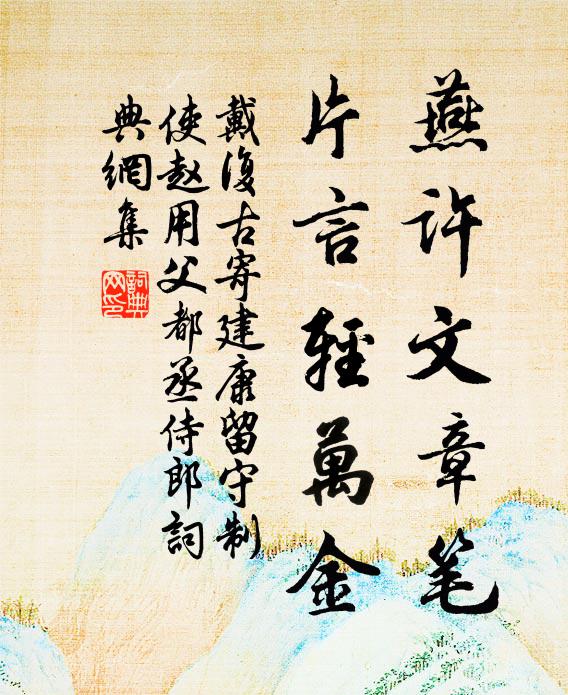 燕许文章笔
片言轻萬金
戴復古寄建康留守制
使赵用父都丞侍郎詞
典網集
詞典
网印